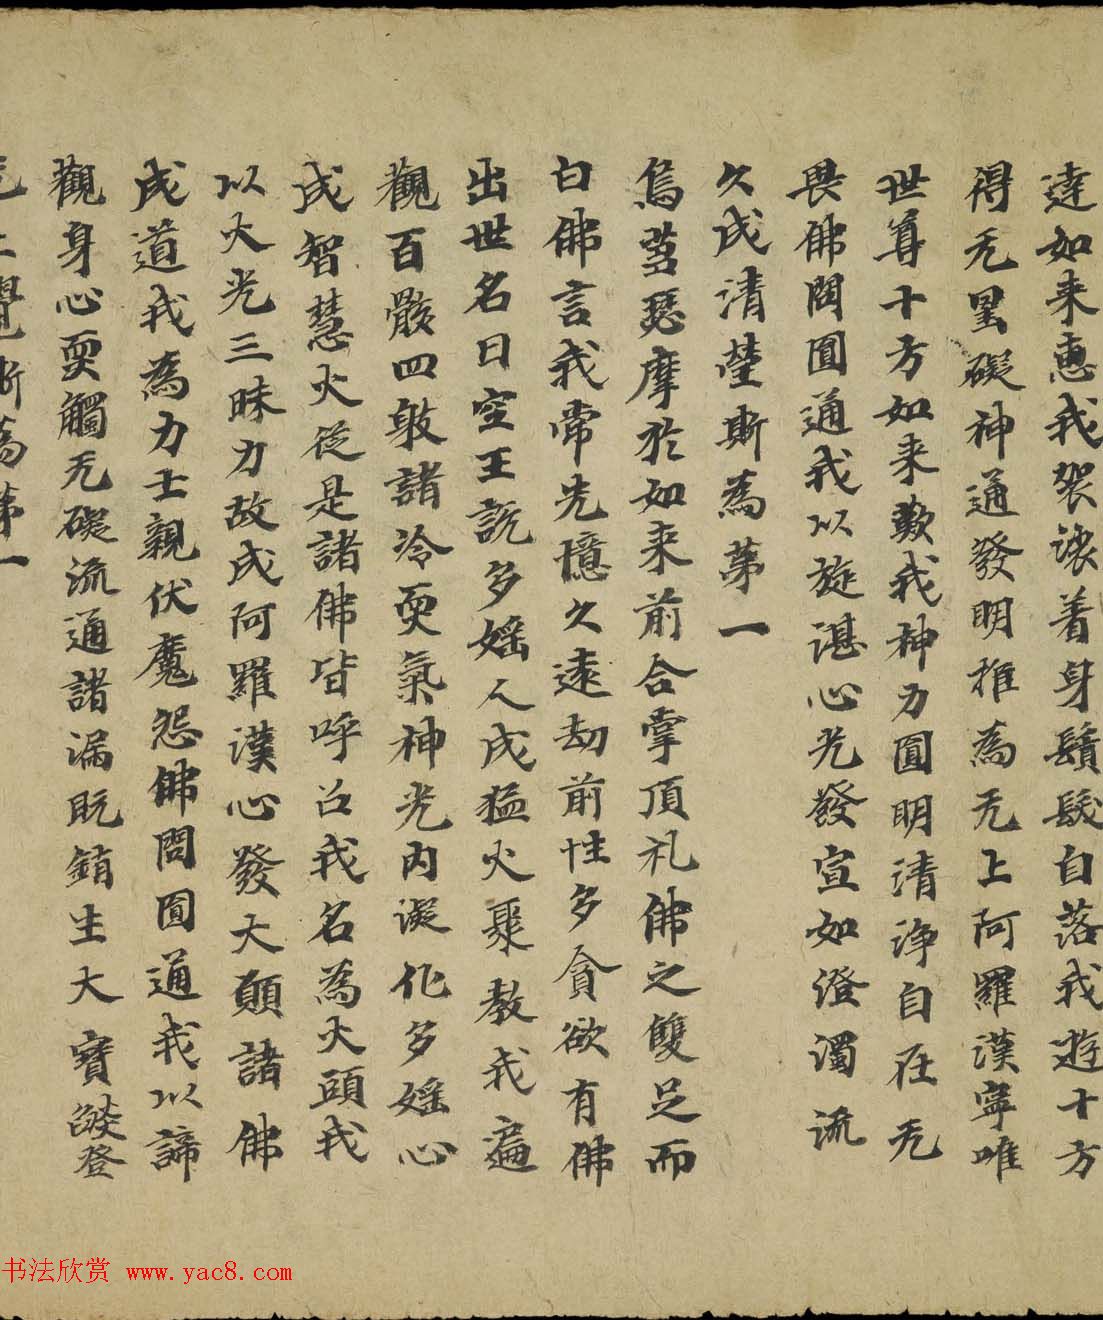 達如来惠我袈裟着身鬚髮自落我遊十方
得无罣礙神通發明推為无上阿羅漢寧唯
世尊十方如来歎我神力圓明清淨自在无
畏佛問圓通我以旋湛心光發宣如澄濁流
久成清瑩斯為苐一
烏芻瑟摩於如来前合掌頂礼佛之雙足而
白佛言我常先憶久遠劫前性多貪欲有佛
出世名曰空王說多婬人成猛火聚教我遍
觀百骸四𦙶諸冷煗氣神光内凝化多婬心
成智慧火從是諸佛皆呼召我名為火頭我
以火光三昧力故成阿羅漢心發大願諸佛
成道我為力士親伏魔怨佛問圓通我以諦
觀身心煗觸无礙流通諸漏既銷生大寶𦦨登
无上覺斯為苐一
书法欣赏 www.yac8.com